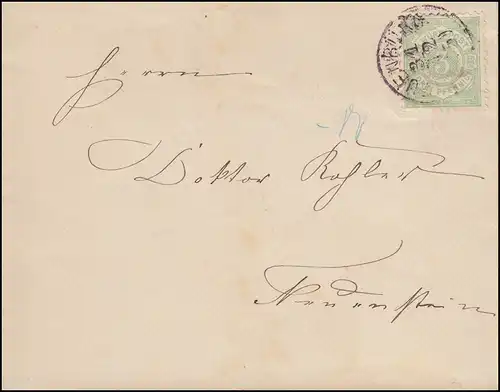 Herrn
Doktor Kohler
Neuenstein